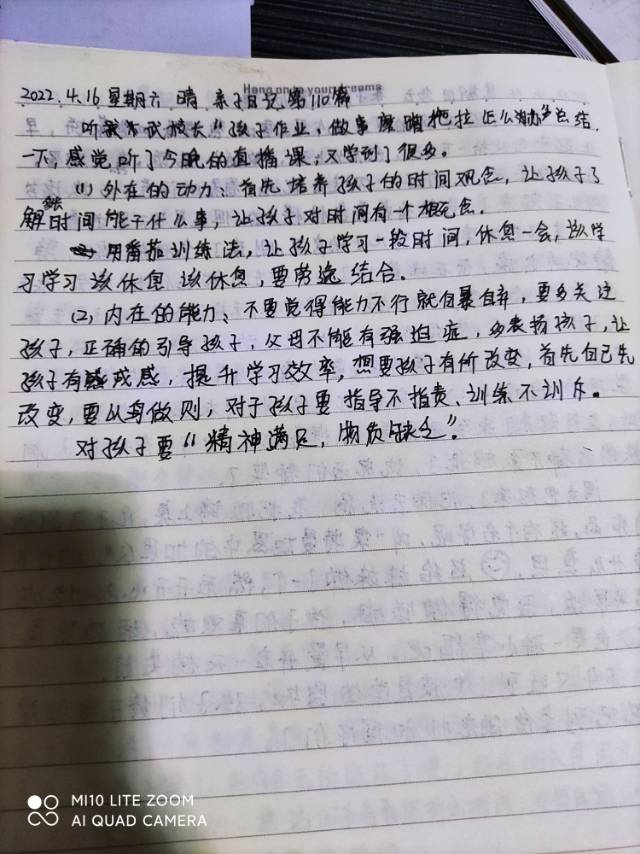 Hang on to your dreams
2022.4.16 星期六 晴 亲子日记第110篇
听我东武校长"孩子作业、做事磨蹭拖拉怎么办总结
一下,感觉听了今晚的直播课,又学到了很多。
(1) 外在的动力、首先培养孩子的时间观念,让孩子了
解时间能干什么事,让孩子对时间有一个概念.
用番茄训练法,让孩子学习一段时间,休息一会,该学
习学习 该休息 该休息,要劳逸结合.
(2) 内在的能力、不要觉得能力不行就自暴自弃,要多关注
孩子,正确的引导孩子,父母不能有强迫症,多表扬孩子,让
孩子有成感,提升学习效率,想要孩子有所改变,首先自己先
改变,要以身做则,对于孩子要指导不指责、训练不训斥。
对孩子要"精神满足,物质缺乏"。
MI10 LITE ZOOM
AI QUAD CAMERA